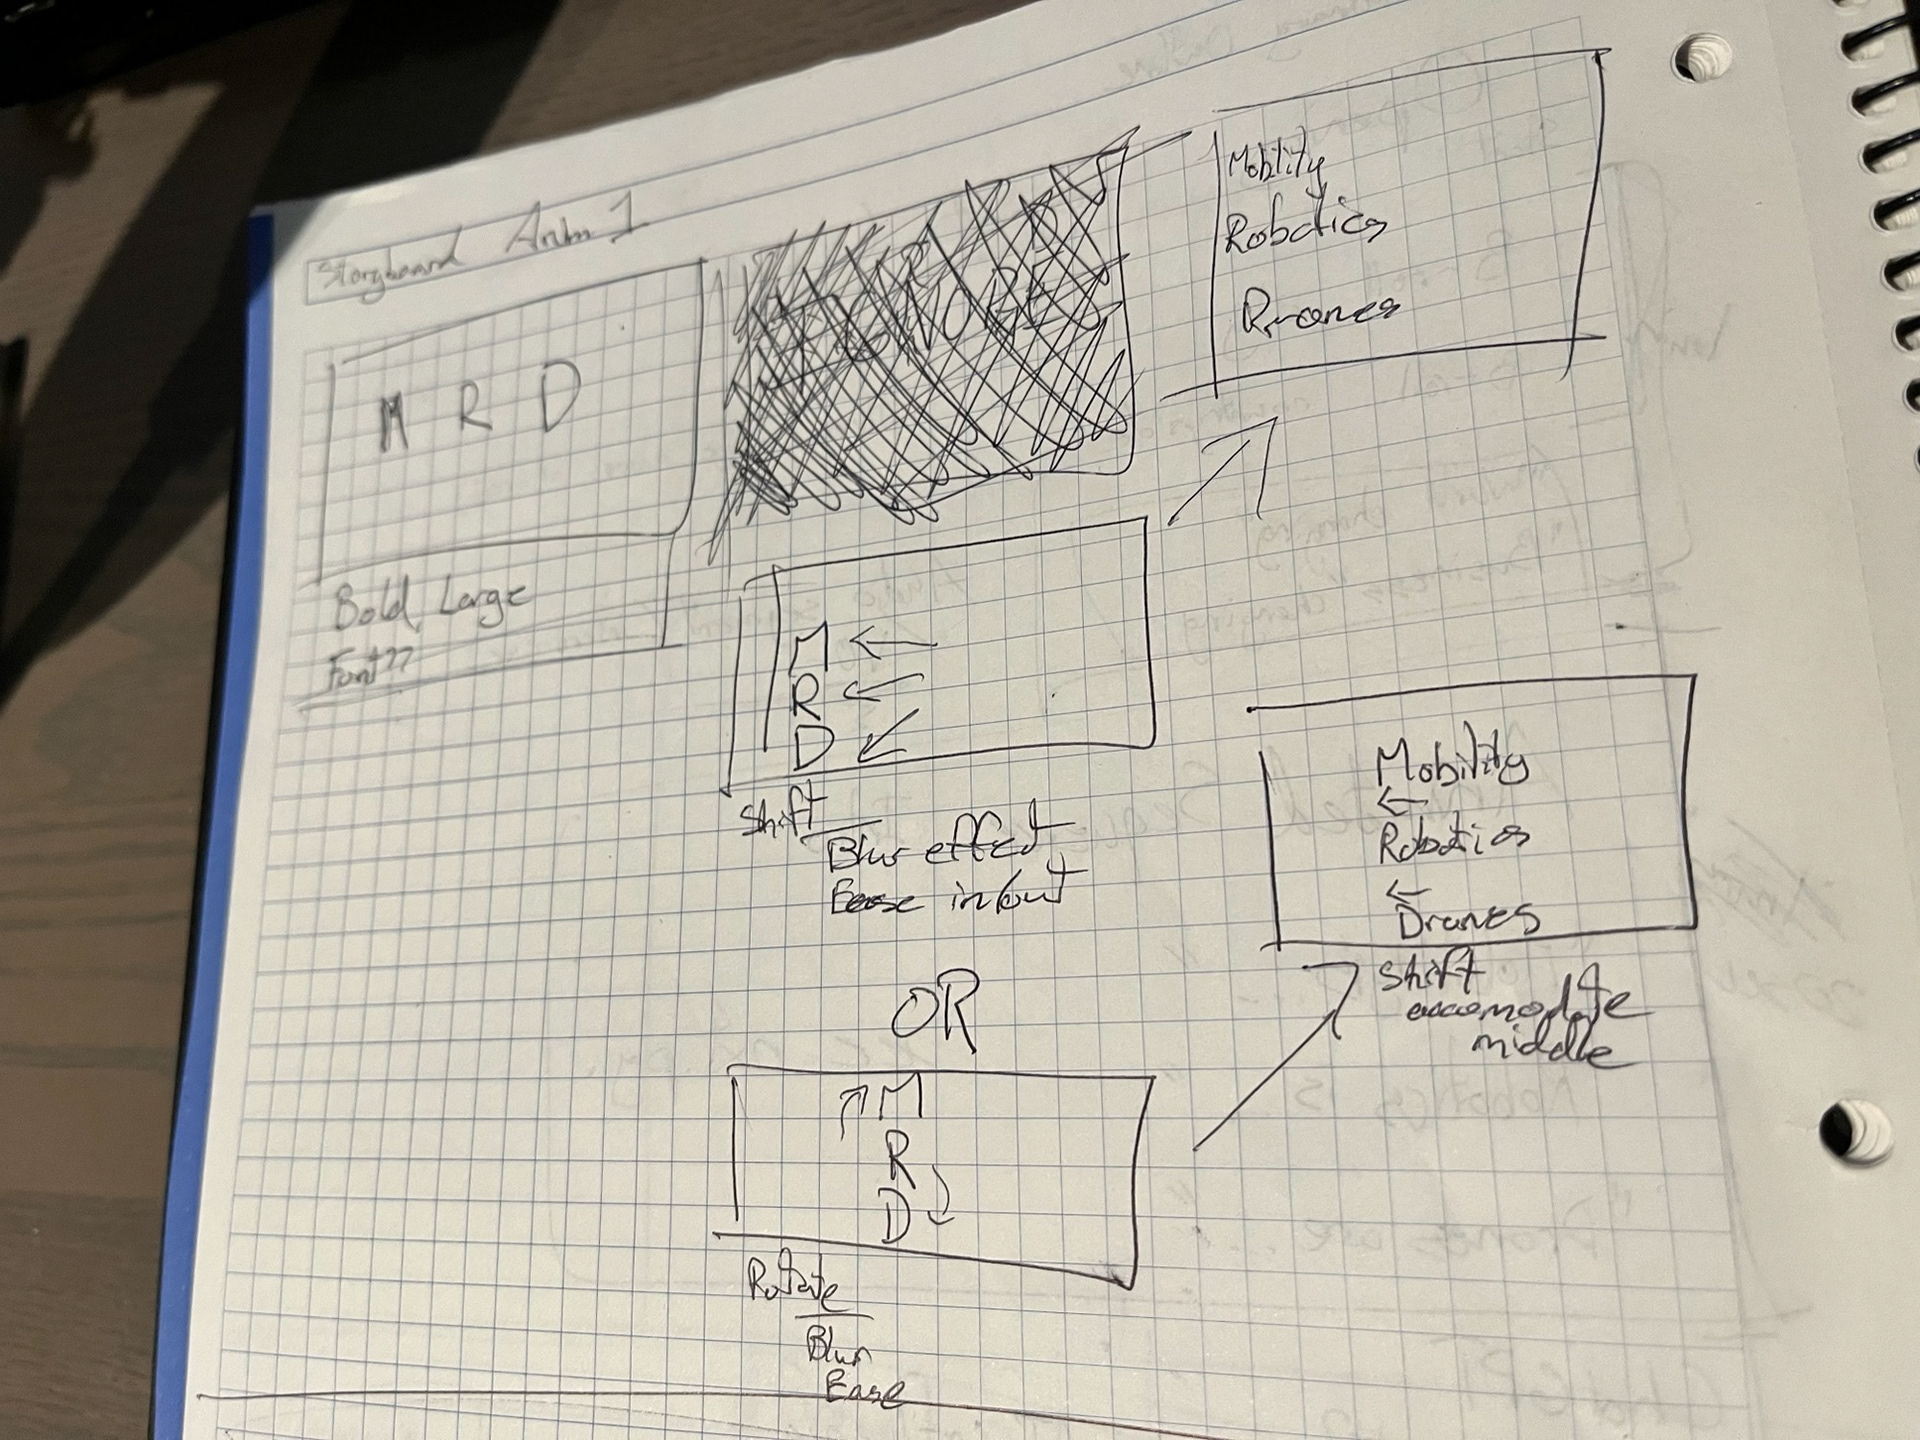 Storyboard Anim 1
M R D
Bold Large
Font??
IGNORE
Mobility
Robotics
Drones
M
R
D
Shift
Blur effect
Ease in/out
OR
M
R
D
Rotate
Blur
Ease
Mobility
Robotics
Drones
Shift
accomodate
middle